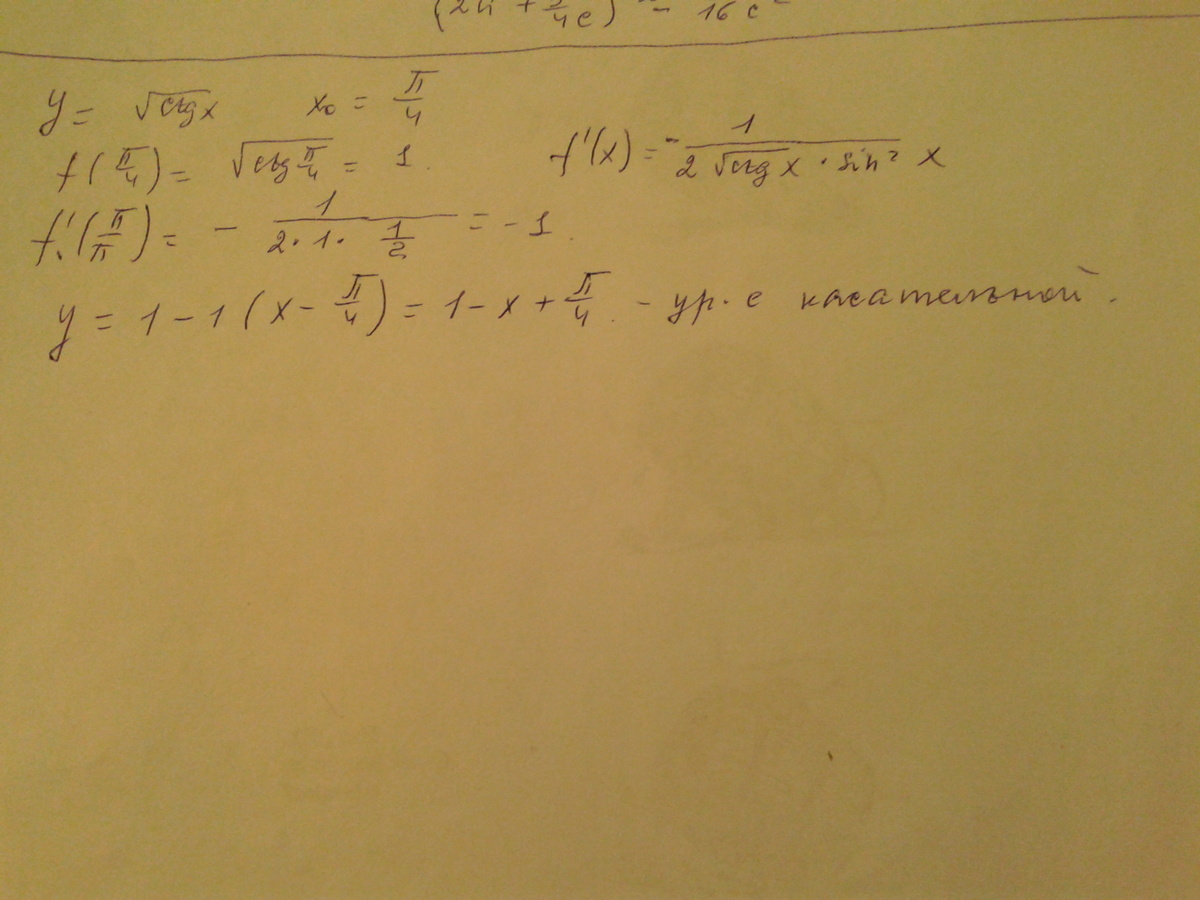 y = √ctgx x₀ = π/4
f(π/4) = √ctg π/4 = 1. f'(x) = - 1/(2√ctgx · sin² x)
f'(π/π) = - 1/(2·1· 1/2) = -1.
y = 1 - 1(x - π/4) = 1 - x + π/4. - ур. е касательной.